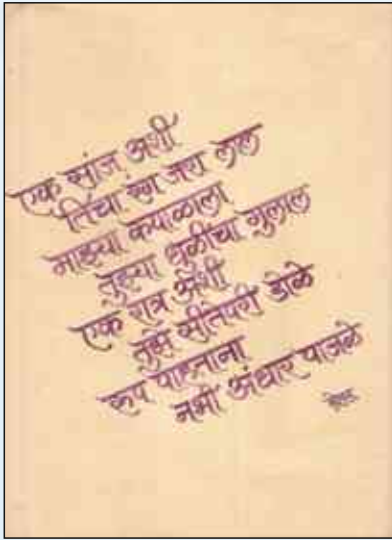 एक सांज अशी
तिचा रंग जरा लाल
माझ्या कपाळाला
तुझ्या धुळीचा गुलाल
एक रात्र अशी
तुझे सीतेपरी डोळे
रूप पाहताना
नभी अंधार पाजळे
ग्रेस